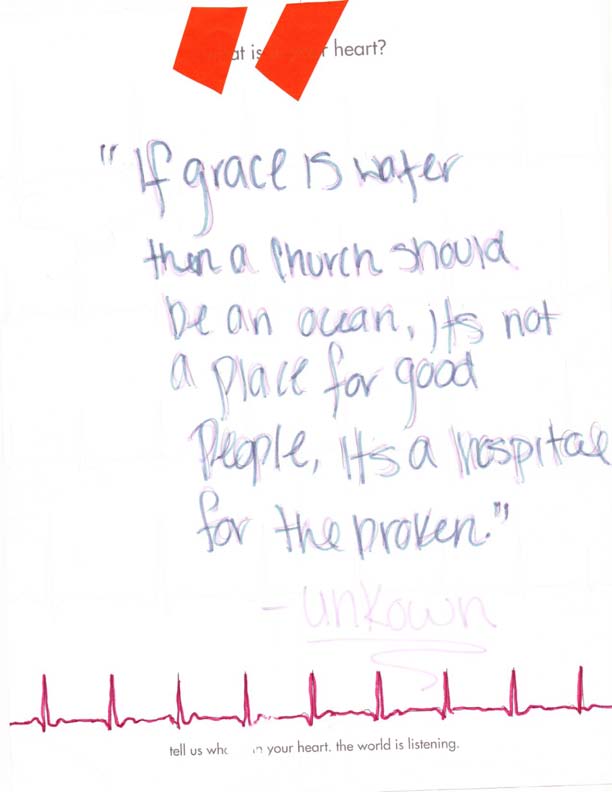 at is r heart?
"If grace is water
then a church should
be an ocean, its not
a place for good
People, its a hospital
for the broken."
- unkown
tell us wh your heart. the world is listening.